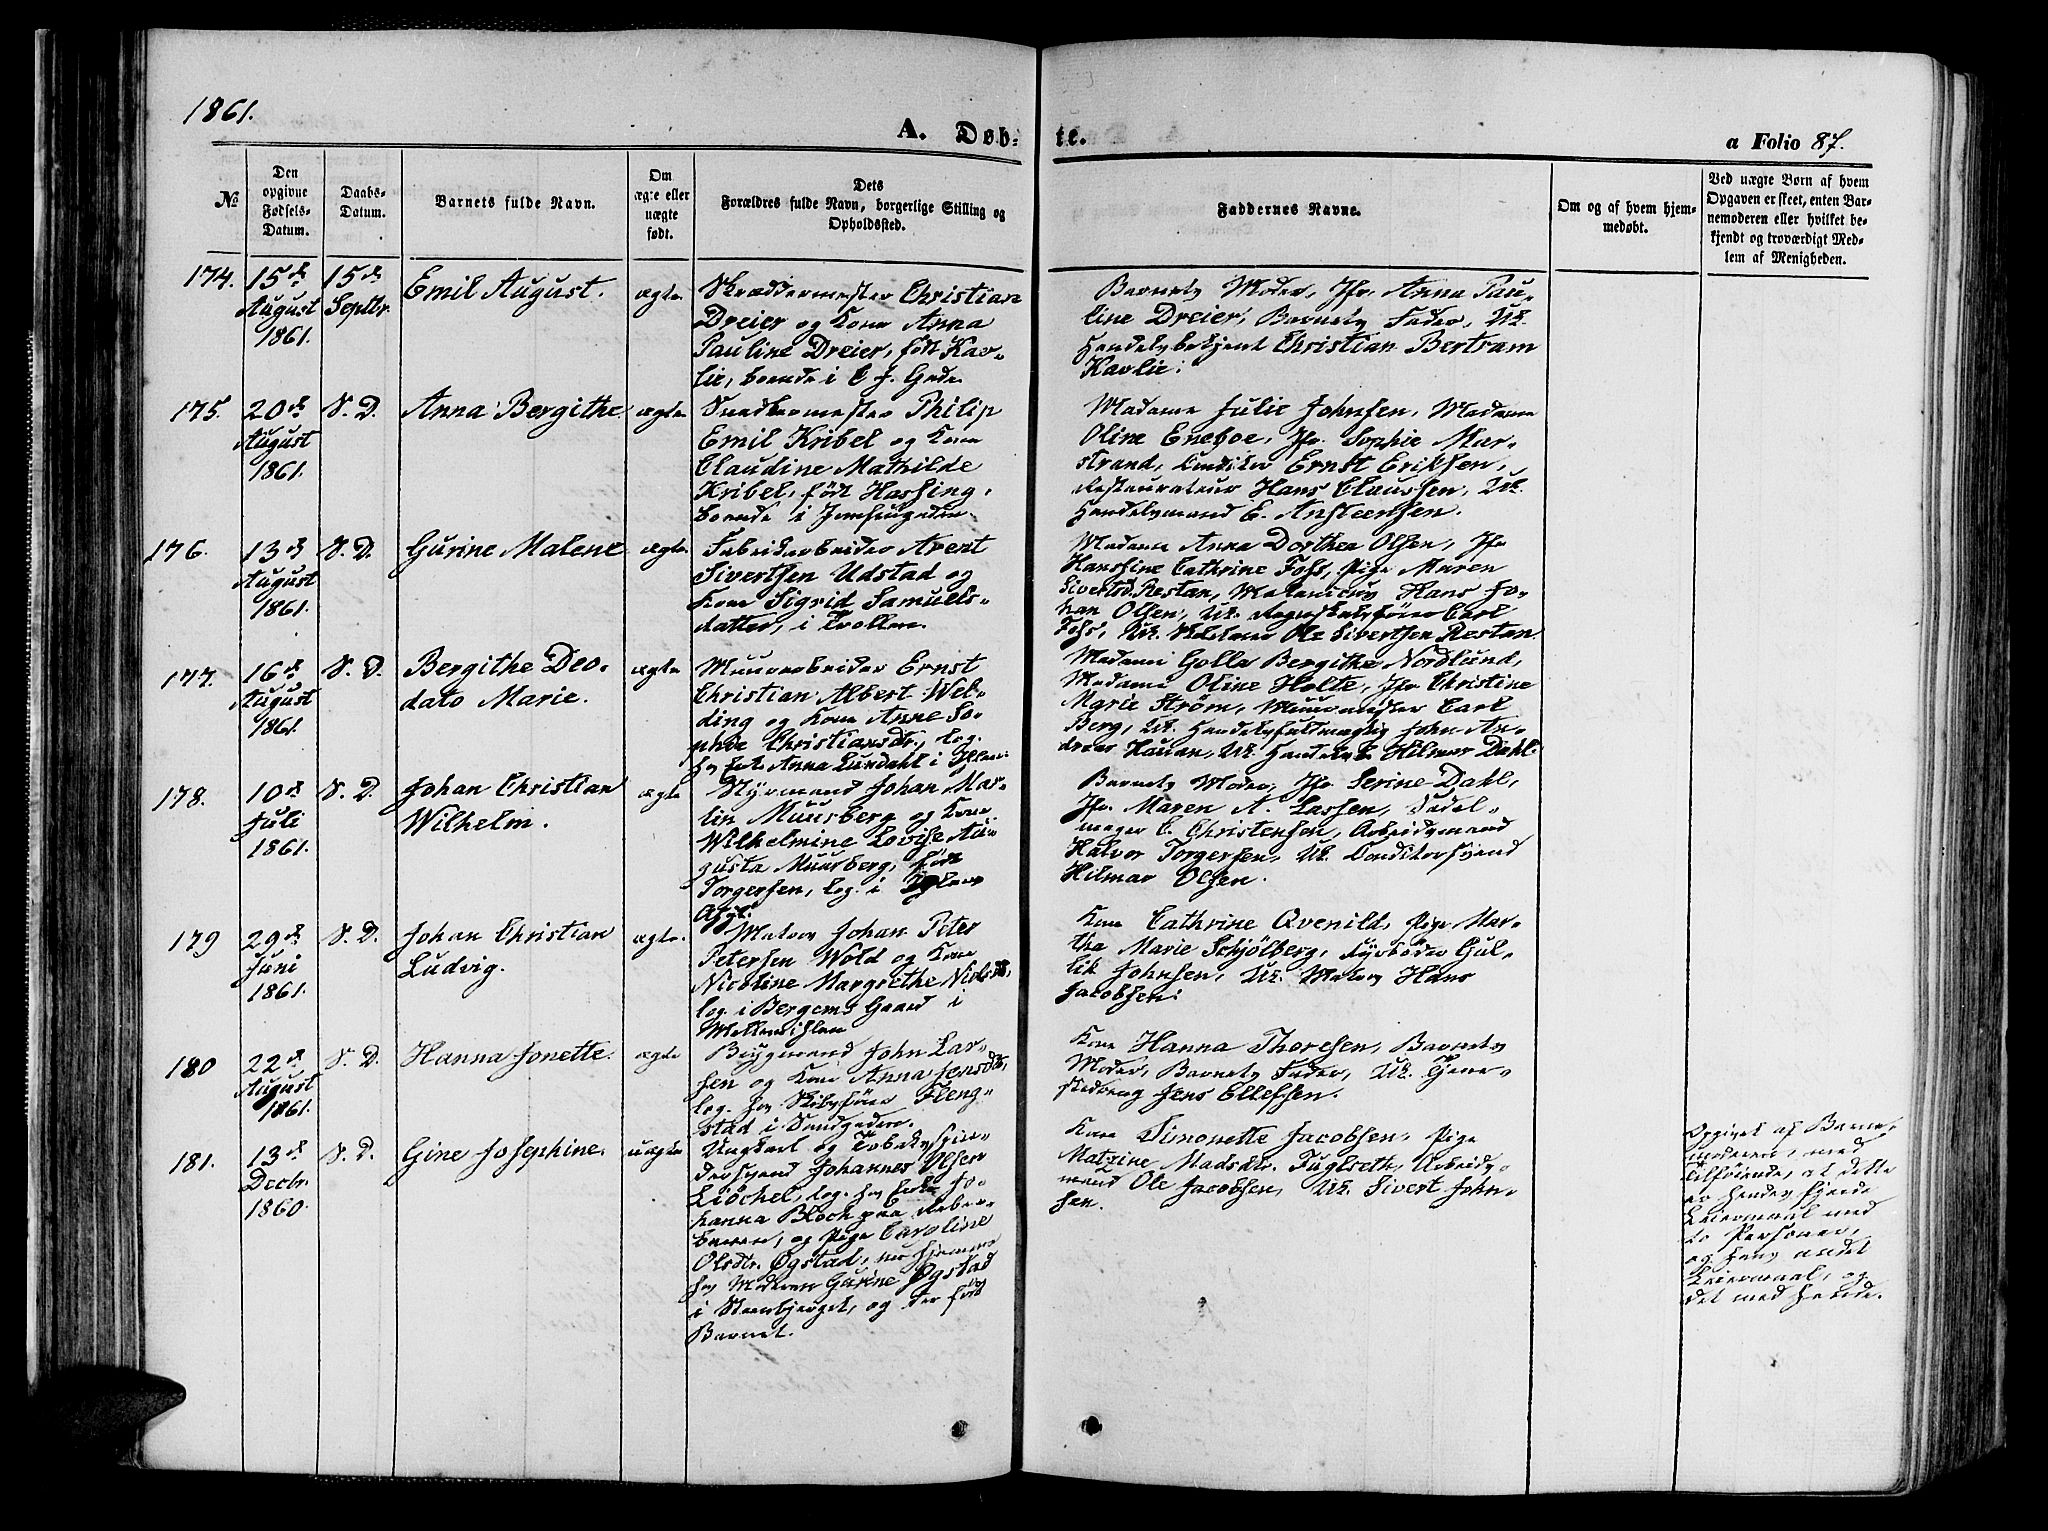 1861.
A. Døb-
te.
a Folio 87.
№
Den
opgivne
Fødsels-
Datum.
Daabs-
Datum.
Barnets fulde Navn.
Om
ægte eller
uægte
født.
Dets
Forældres fulde Navn, borgerlige Stilling og
Opholdssted.
Faddernes Navne.
Om og af hvem hjem-
medøbt.
Ved uægte Børn af hvem
Opgaven er skeet, enten Bar-
nemoderen eller hvilket be-
kjendt og troværdigt Med-
lem af Menigheden.
174.
15de
August
1861.
15de
Septbr.
Emil August.
ægte
Skræddermester Christian
Dreier og Kone Anna
Pauline Dreier, født Kav-
lie, boende i Gade
Barnets Moder, Jfr. Anna Pau-
line Dreier, Barnets Fader, Uk.
Handelsbetjent Christian Bertram
Kavlie.
175.
20de
August
1861.
S. D.
Anna Bergithe
ægte
Snedkermester Philip
Emil Kribel og Kone
Claudine Mathilde
Kribel, født Hassing,
boende i Jomfrugaden
Madame Julie Johnsen, Madame
Oline Eneboe, Jfr. Sophie Mar-
strand, Conditor Ernst Eriksen,
Restaurateur Hans Claussen, Uk.
Handelsmand E. Ansteensen.
176.
13de
August
1861.
S. D.
Gurine Malene
ægte
Fabrikarbeider Arent
Sivertsen Udstad og
Kone Sigrid Samuels-
datter, i Trollen.
Madame Anna Dorthea Olsen, Jfr
Hansine Cathrine Foss, Pige Maren
Sivertsd. Restan, Mekanicus Hans Jo-
han Olsen, Uk. Regnskabsfører Carl
Foss, Uk. Ole Sivertsen Restan
177.
16de
August
1861.
S. D.
Bergithe Deo-
dato Marie.
ægte
Muurarbeider Ernst
Christian Albert Wel-
ding og Kone Anne So-
phie Christiansdr., log.
hos Enke Anna Lundahl i Ihlen
Madame Golla Bergithe Nordlund,
Madame Oline Holte, Jfr Christine
Marie Strøm, Muurmester Carl
Berg, Uk. Handelsfuldmægtig John An-
dreas Hauan, Uk. Hilmar Dahl.
178.
10de
Juli
1861.
S. D.
Johan Christian
Wilhelm.
ægte
Styrmand Johan Mar-
tin Muusberg og Kone
Wilhelmine Lovise Au-
gusta Muusberg, født
Torgersen, log. i Ihlens
Barnets Moder, Jfr Serine Dahl,
Jfr. Maren A. Lassen, Sadel-
mager C. Christensen, Arbeidsmand
Halvor Torgersen, Uk. Conditorsvend
Hilmar Olsen.
179
29de
Juni
1861.
S. D.
Johan Christian
Ludvig.
ægte.
Matros Johan Peter
Petersen Wold og Kone
Nicoline Margrethe Nielsdr,
log. i Bergems Gaard i
Møllenbakken
Kone Cathrine Qvenild, Pige Mar-
tha Marie Schjølberg, Fyrbøder Gul-
lik Johnsen, Uk. Matros Hans
Jacobsen.
180
22de
August
1861.
S. D.
Hanna Jonette.
ægte
Bryggemand John Lar-
sen og Kone Anna Jensdr,
log. hos Skibsfører Fleng-
stad i Sandgaden.
Kone Hanna Thoresen, Barnets
Moder, Barnets Fader, Uk. Tjene-
stedreng Jens Ellefsen.
181.
13de
Decbr.
1860.
S. D.
Gine Josephine.
uægte
Ungkarl og Tobakspin-
dersvend Johannes Olsen
Liøchel, log. hos Enke Jo-
hanna Bloch paa Reber-
banen, og Pige Caroline
Olsdtr. Øgstad, nu hjemme
hos Moderen Gurine Øgstad
i Steenbjerget, og der født
Barnet.
Kone Simonette Jacobsen, Pige
Matzine Madsdtr. Fuglseth, Arbeids-
mand Ole Jacobsen, Uk. Sivert John-
sen.
Opgivet af Barne-
moderen, med
Tilføiende, at dette
er hendes fjerde
Leiermaal med
to Personer,
og hans andet
Leiermaal, og
det med hende.